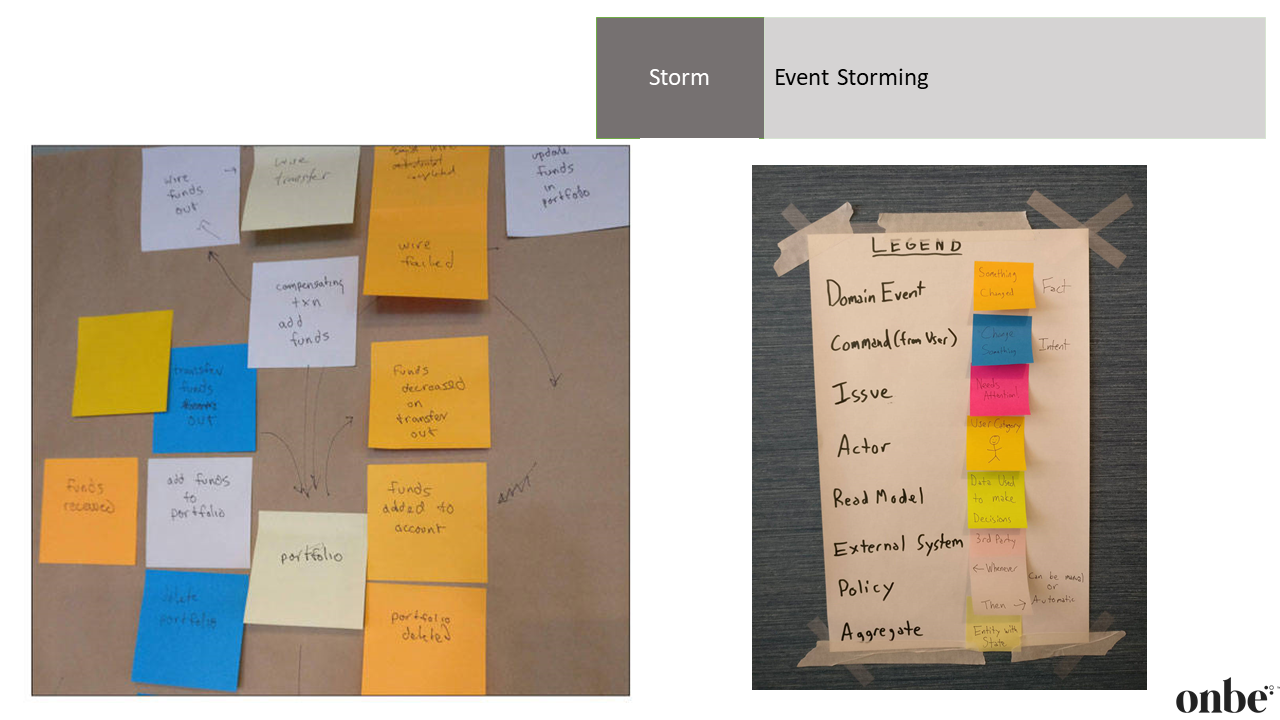 Storm
Event Storming
wire
funds
out
wire
transfer
completed
wire
failed
update
funds
in
portfolio
compensating
txn
add
funds
transfer
funds
out
Funds
decreased
on
transfer
out
funds
recessed
add funds
to
portfolio
portfolio
funds
added to
account
delete
portfolio
portfolio
deleted
LEGEND
Domain Event
Something
Changed
Fact
Command (from User)
Change
Something
Intent
Issue
Needs
Attention!
Actor
User Category
Read Model
Data Used
to make
Decisions
External System
3rd Party
Policy
← Whenever
Then →
Can be manual
or
Automatic
Aggregate
Entity with
State
onbe